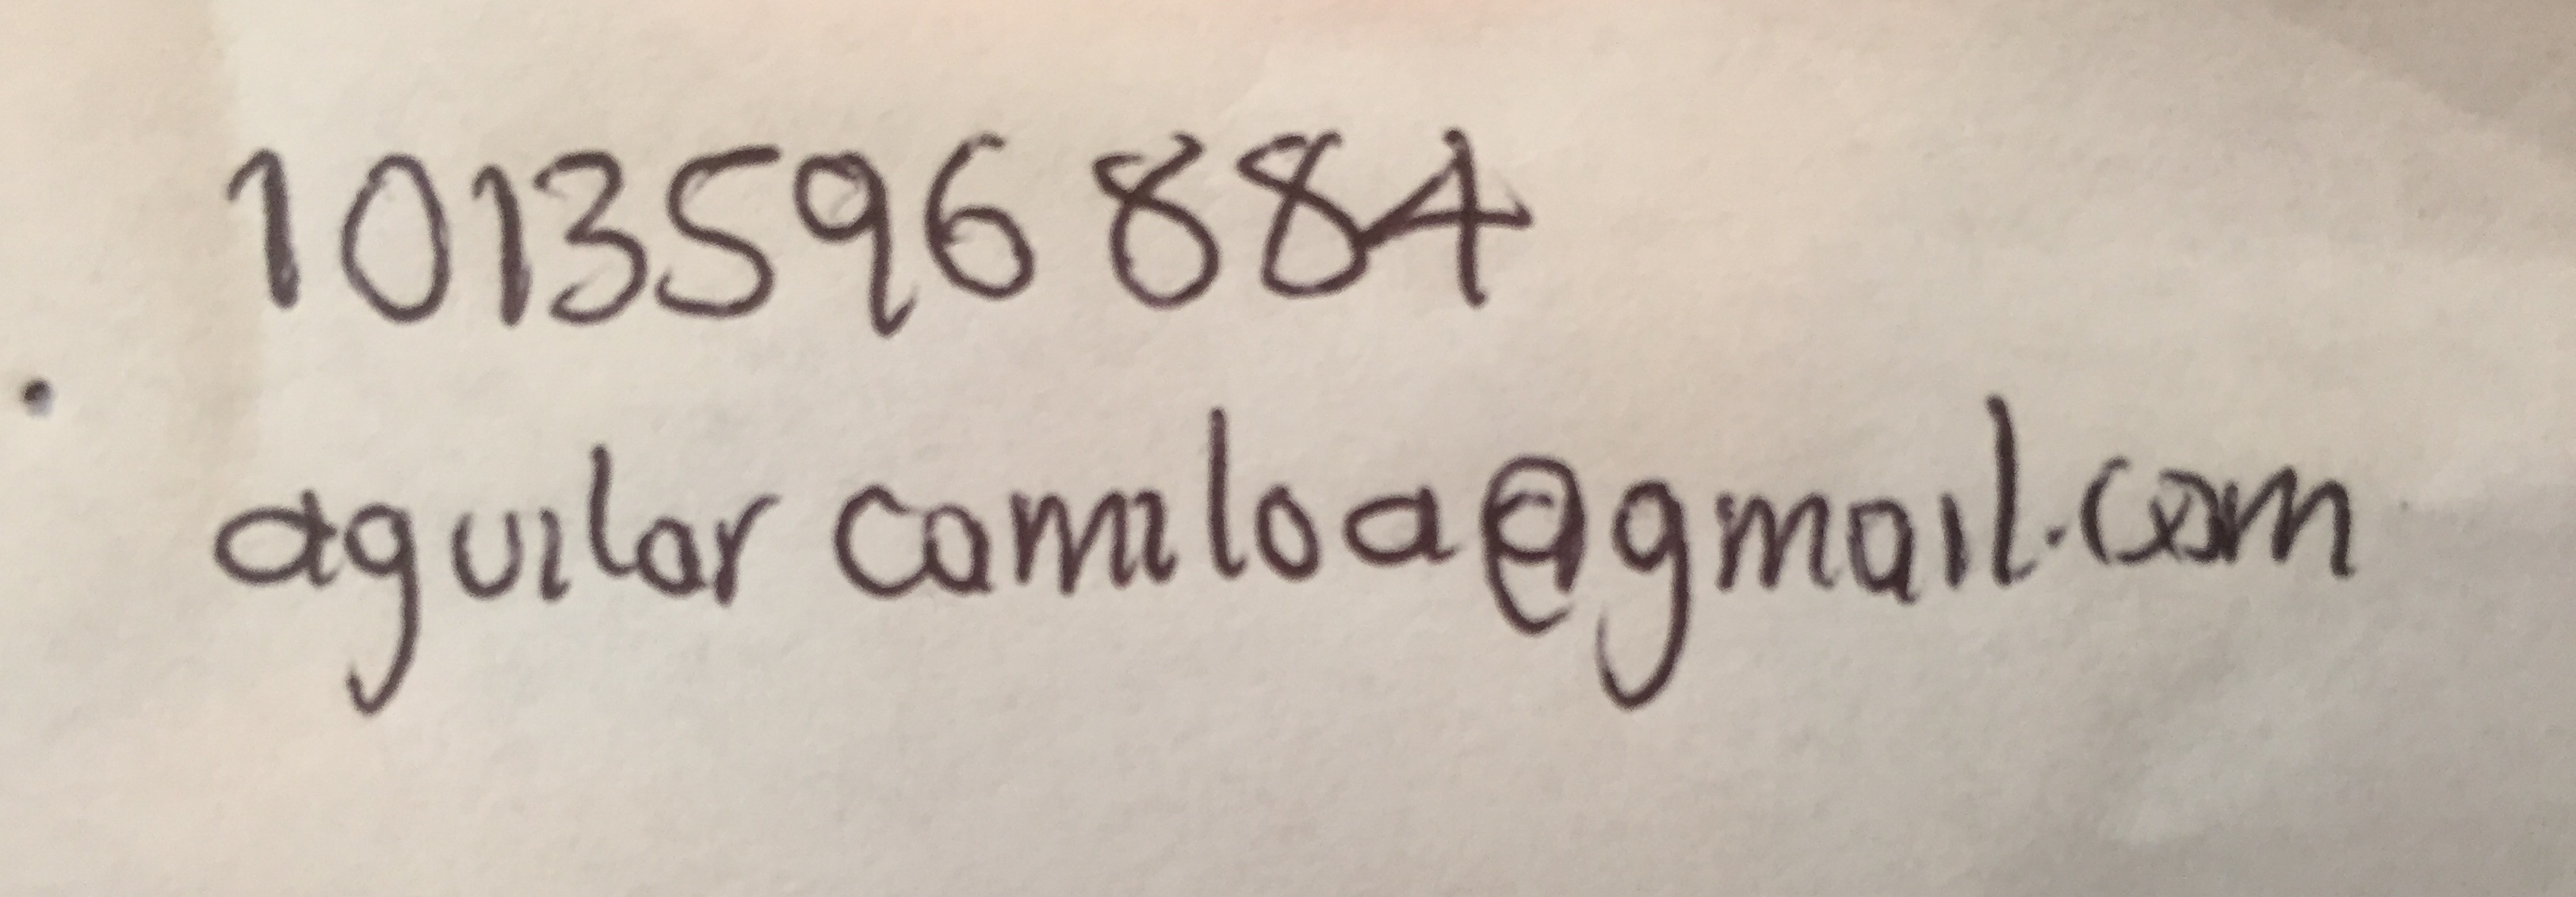 1013596884
aguilarcamiloa@gmail.com